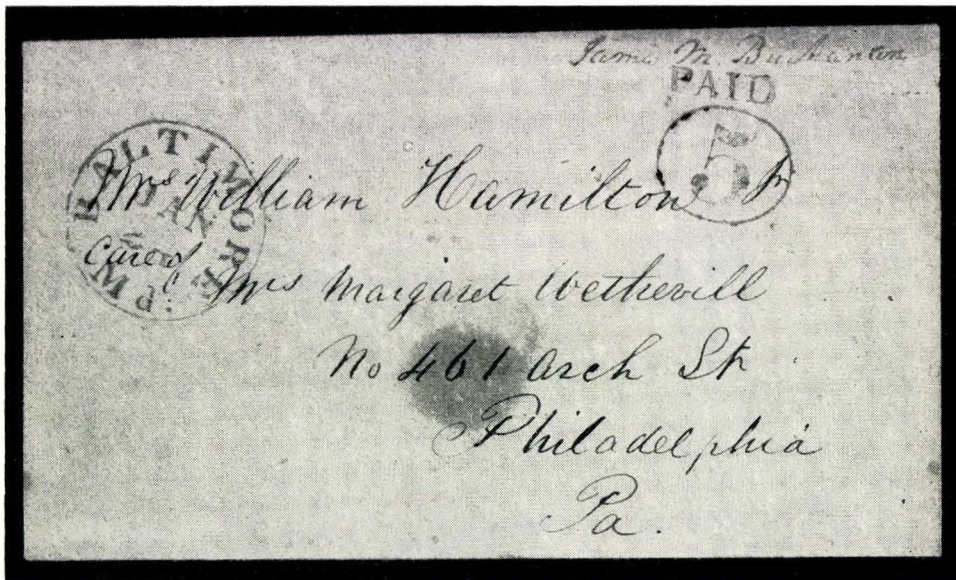 James M. Buchanan
PAID
5
BALTIMORE
JAN
PM
Mrs William Hamilton Jr
Care of
Mrs Margaret Wetherill
No 461 Arch St
Philadelphia
Pa.